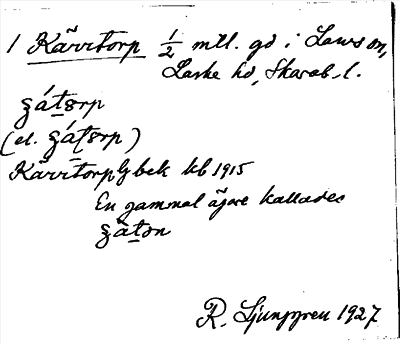 1 Kärrtorp 1/2 mtl. gd i Lawson,
Laske hd, Skarab. l.
(el.
Kärrtorp bek kb 1915
En gammal ägare kallades
R. Ljunggren 1927